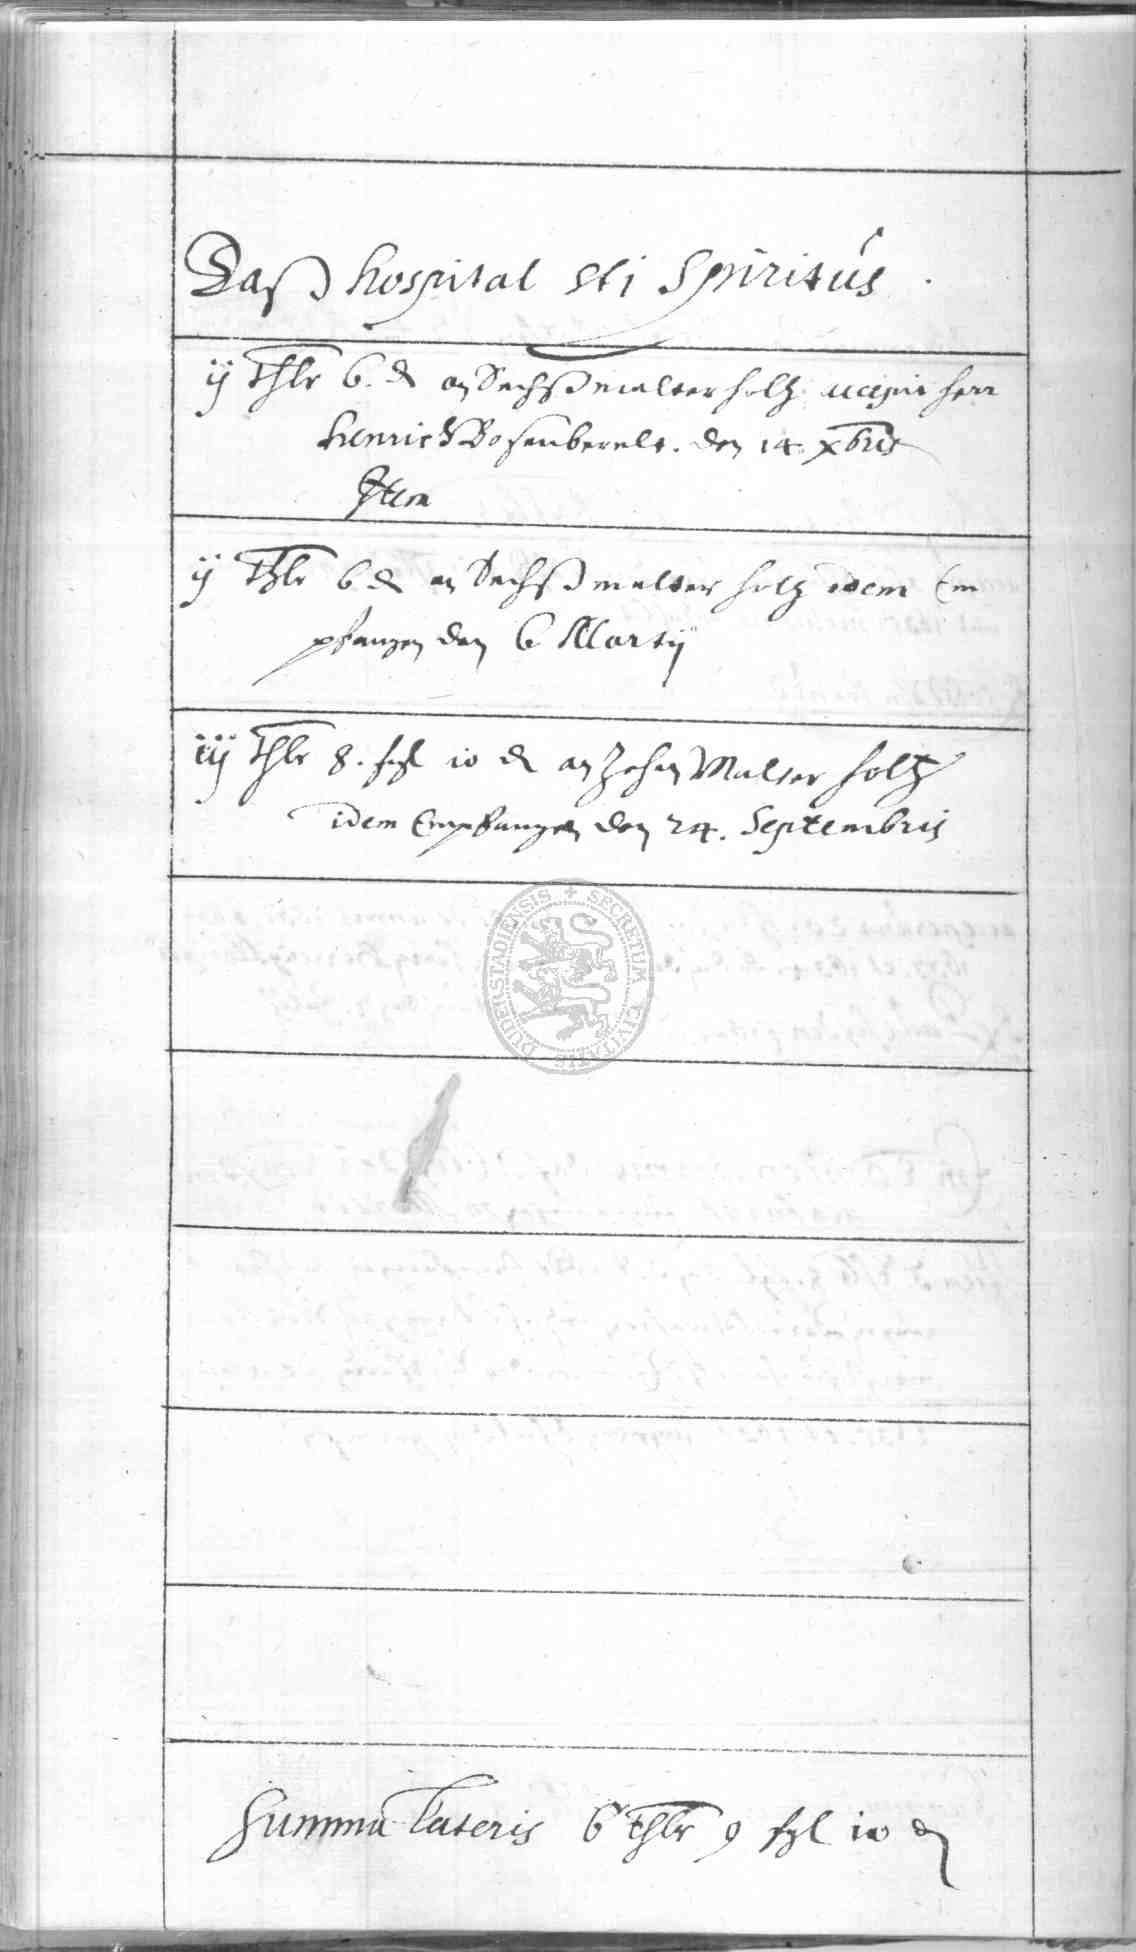 Daß hospital Sti Spiritus.
ij Thlr 6. d an Sechß malter holtz accepit herr
Henrich Bosenberelt. den 14 Xbris
Item
ij Thlr 6 d an Sechß malter holtz idem Em
pfangen den 6 Martij
iij Thlr 8. ßgl 10 d an Zehen Malter holtz
idem Empfangen den 24. Septembris
SECRETUM CIVITATIS DUDERSTADIENSIS
Summa Lateris 6 Thlr 9 ßgl 10 d